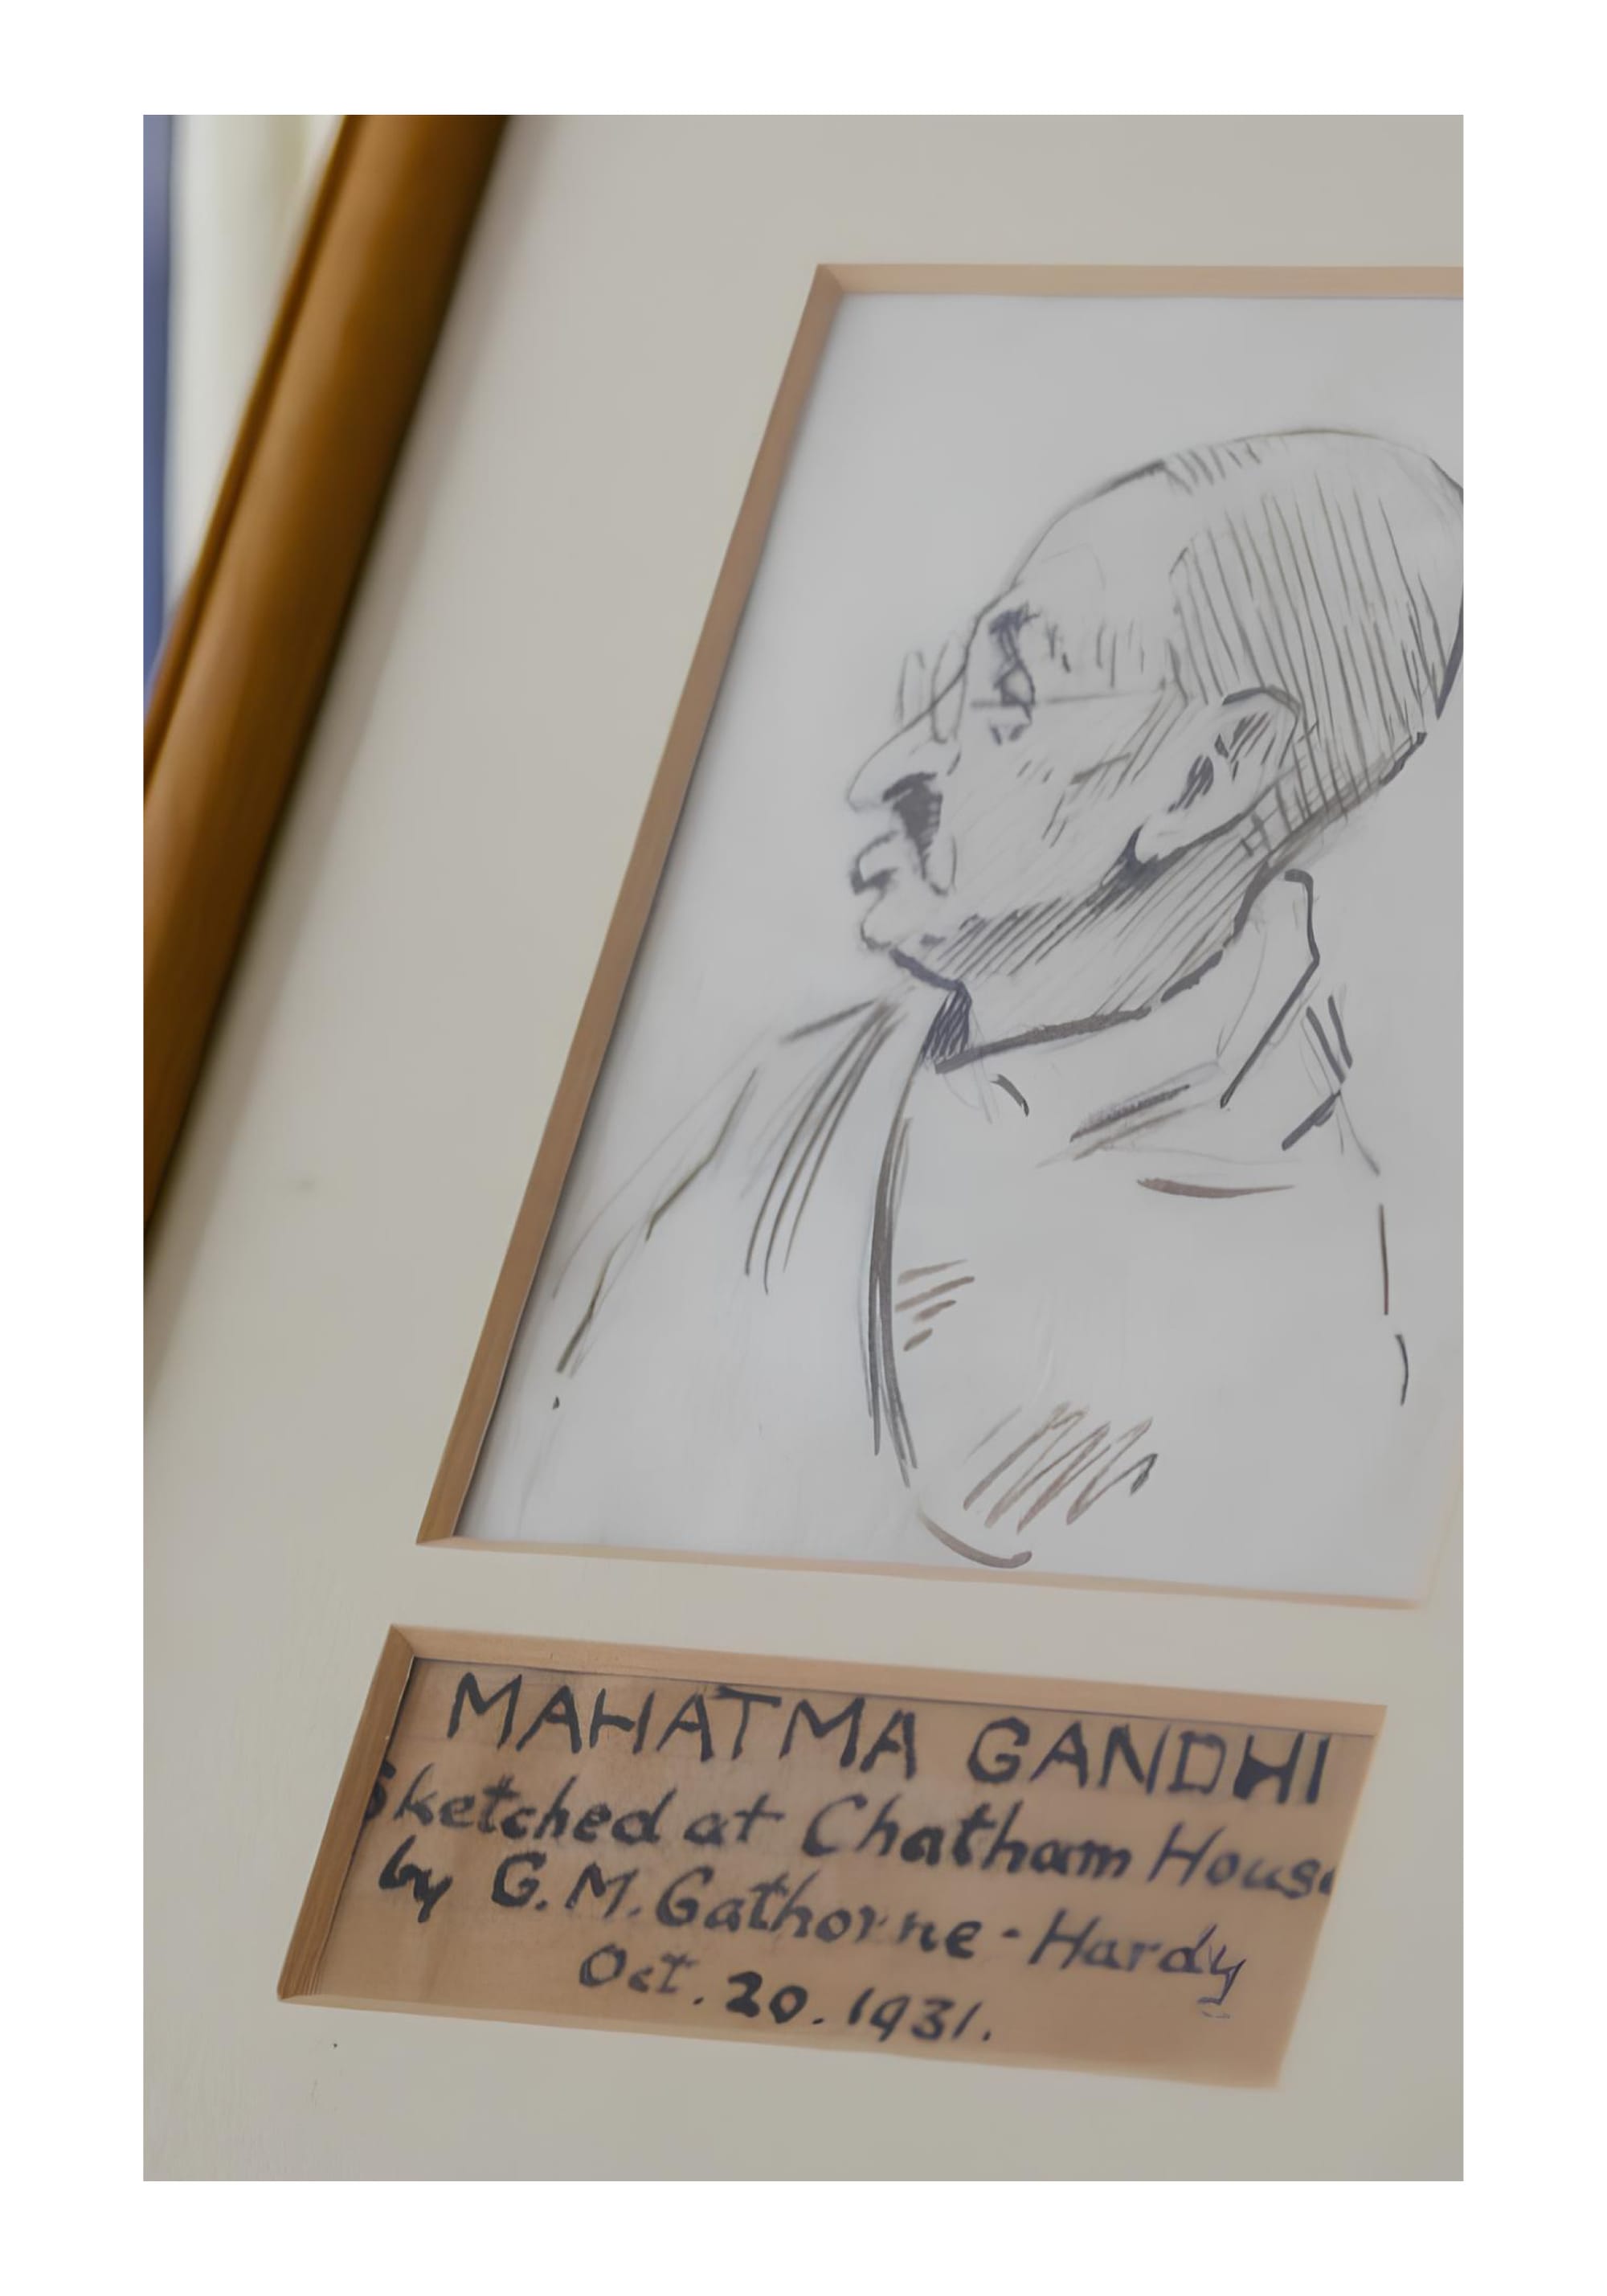 MAHATMA GANDHI
Sketched at Chatham House
by G. M. Gathorne-Hardy
Oct. 20. 1931.